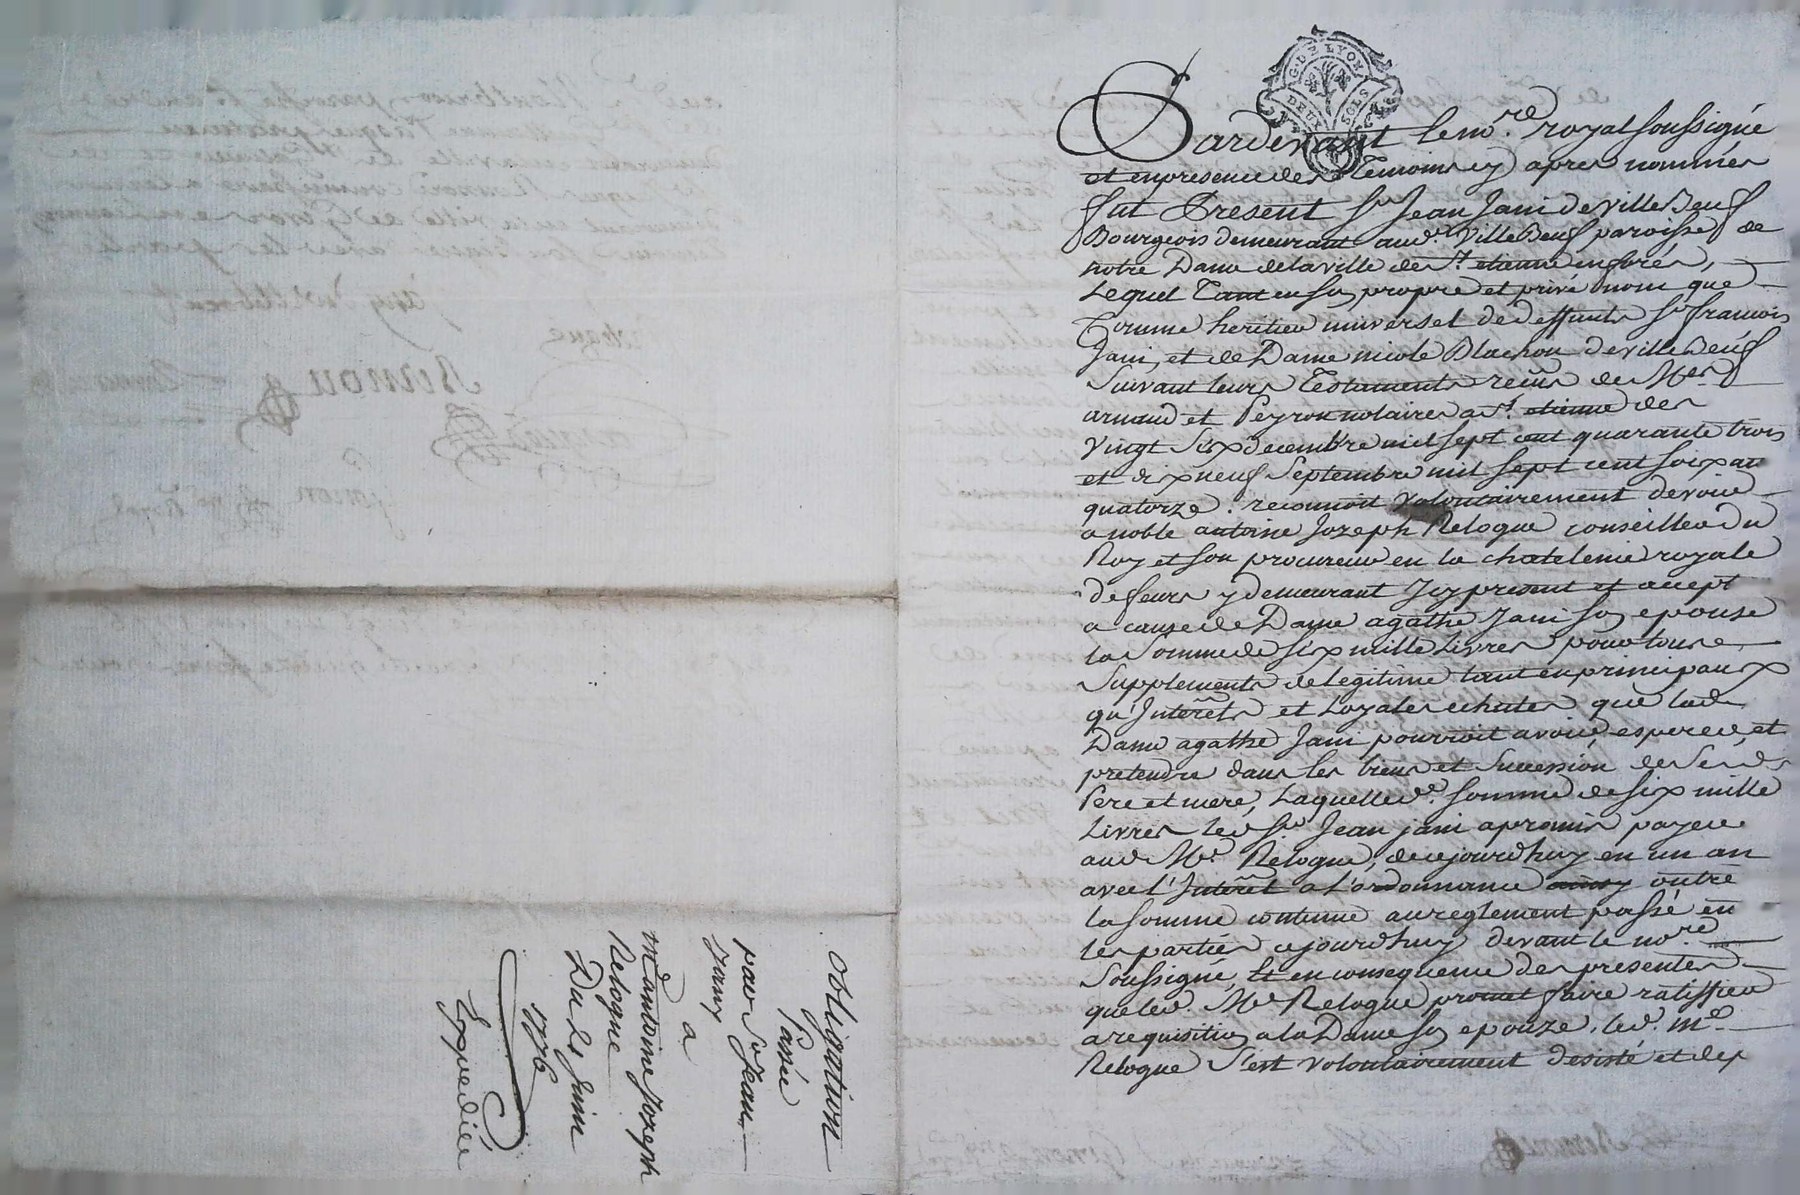 G. DE LYON
DEUX SOLS
Pardevant le no.re royal soussigné
et en presence des Temoins cy apres nommés
fut Present Sr Jean Jani de villeBeuf
Bourgeois demeurant aud. VilleBeuf paroisse de
notre Dame de la ville de St. etienne en forés,
Lequel Tant en son propre et privé nom que
Comme heritier universel de deffunts Sr francois
Jani, et de Dame nicole Blachon de villeBeuf
Suivant leurs Testaments reçus de Mes
arnaud et Peyron notaires a St. etienne des
Vingt Six decembre mil Sept cent quarante trois
et dix neuf Septembre mil Sept cent soixan
quatorze. reconnoit volontairement devoir
a noble antoine Jozeph Relogue conseiller du
Roy et son procureur en la chatelenie royale
de feurs y demeurant Icy present et accept
a cause de Dame agathe Jani son epouse
la Somme de six mille Livres pour tous
Supplements de legitime tant en principaux
qu'Interêts et Loyales echutes que lad.
Dame agathe Jani pourroit avoir, esperer, et
pretendre dans les biens et Succession de Sesd.
Pere et mere, Laquelle d. somme de six mille
Livres led. Sr. Jean jani a promis payer
aud. Mr. Relogue, de cejourdhuy en un an
avec l'Interêt a l'ordonnance outre
la somme contenue au reglement passé en
les parties cejourdhuy devant le no.re
Soussigné, Et en consequence des presentes
que led. Mr Relogue promet faire ratiffier
a requisition a la Dame son epouze, led. Me
Relogue S'est volontairement desisté et dep
obligation
Passée
par Sr Jean
Jany
a
Md antoine Jozeph
Relogue
Du 25 Juin
1776
Expediée